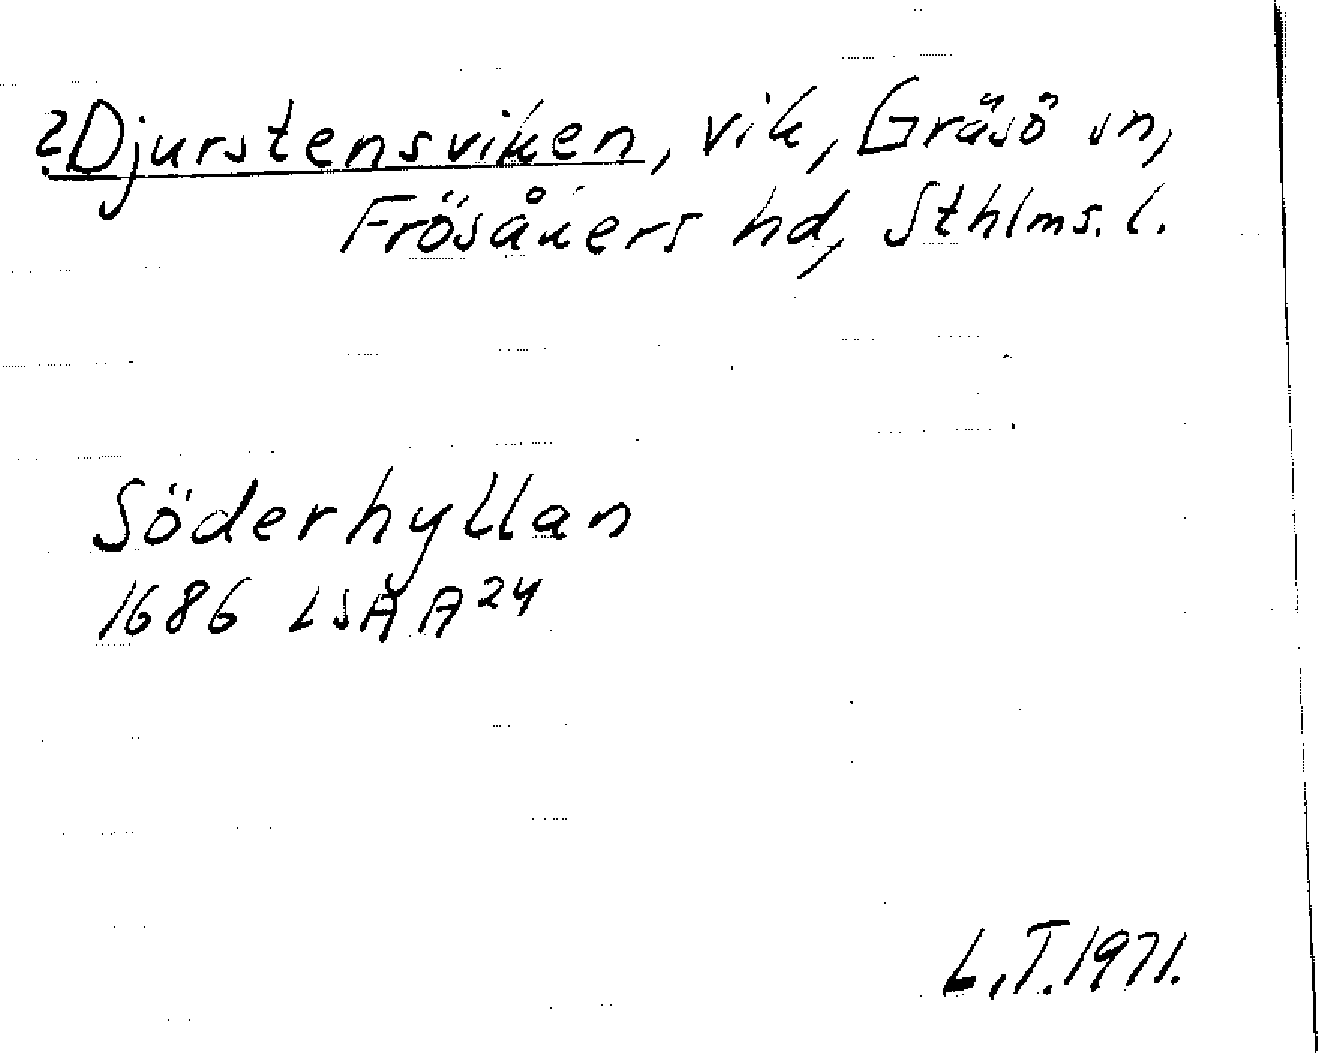 ?Djurstensviken, vik, Gräsö sn,
Frösåkers hd, Sthlms. l.
Söderhyllan
1686 LSÄ A24
L.T.1971.